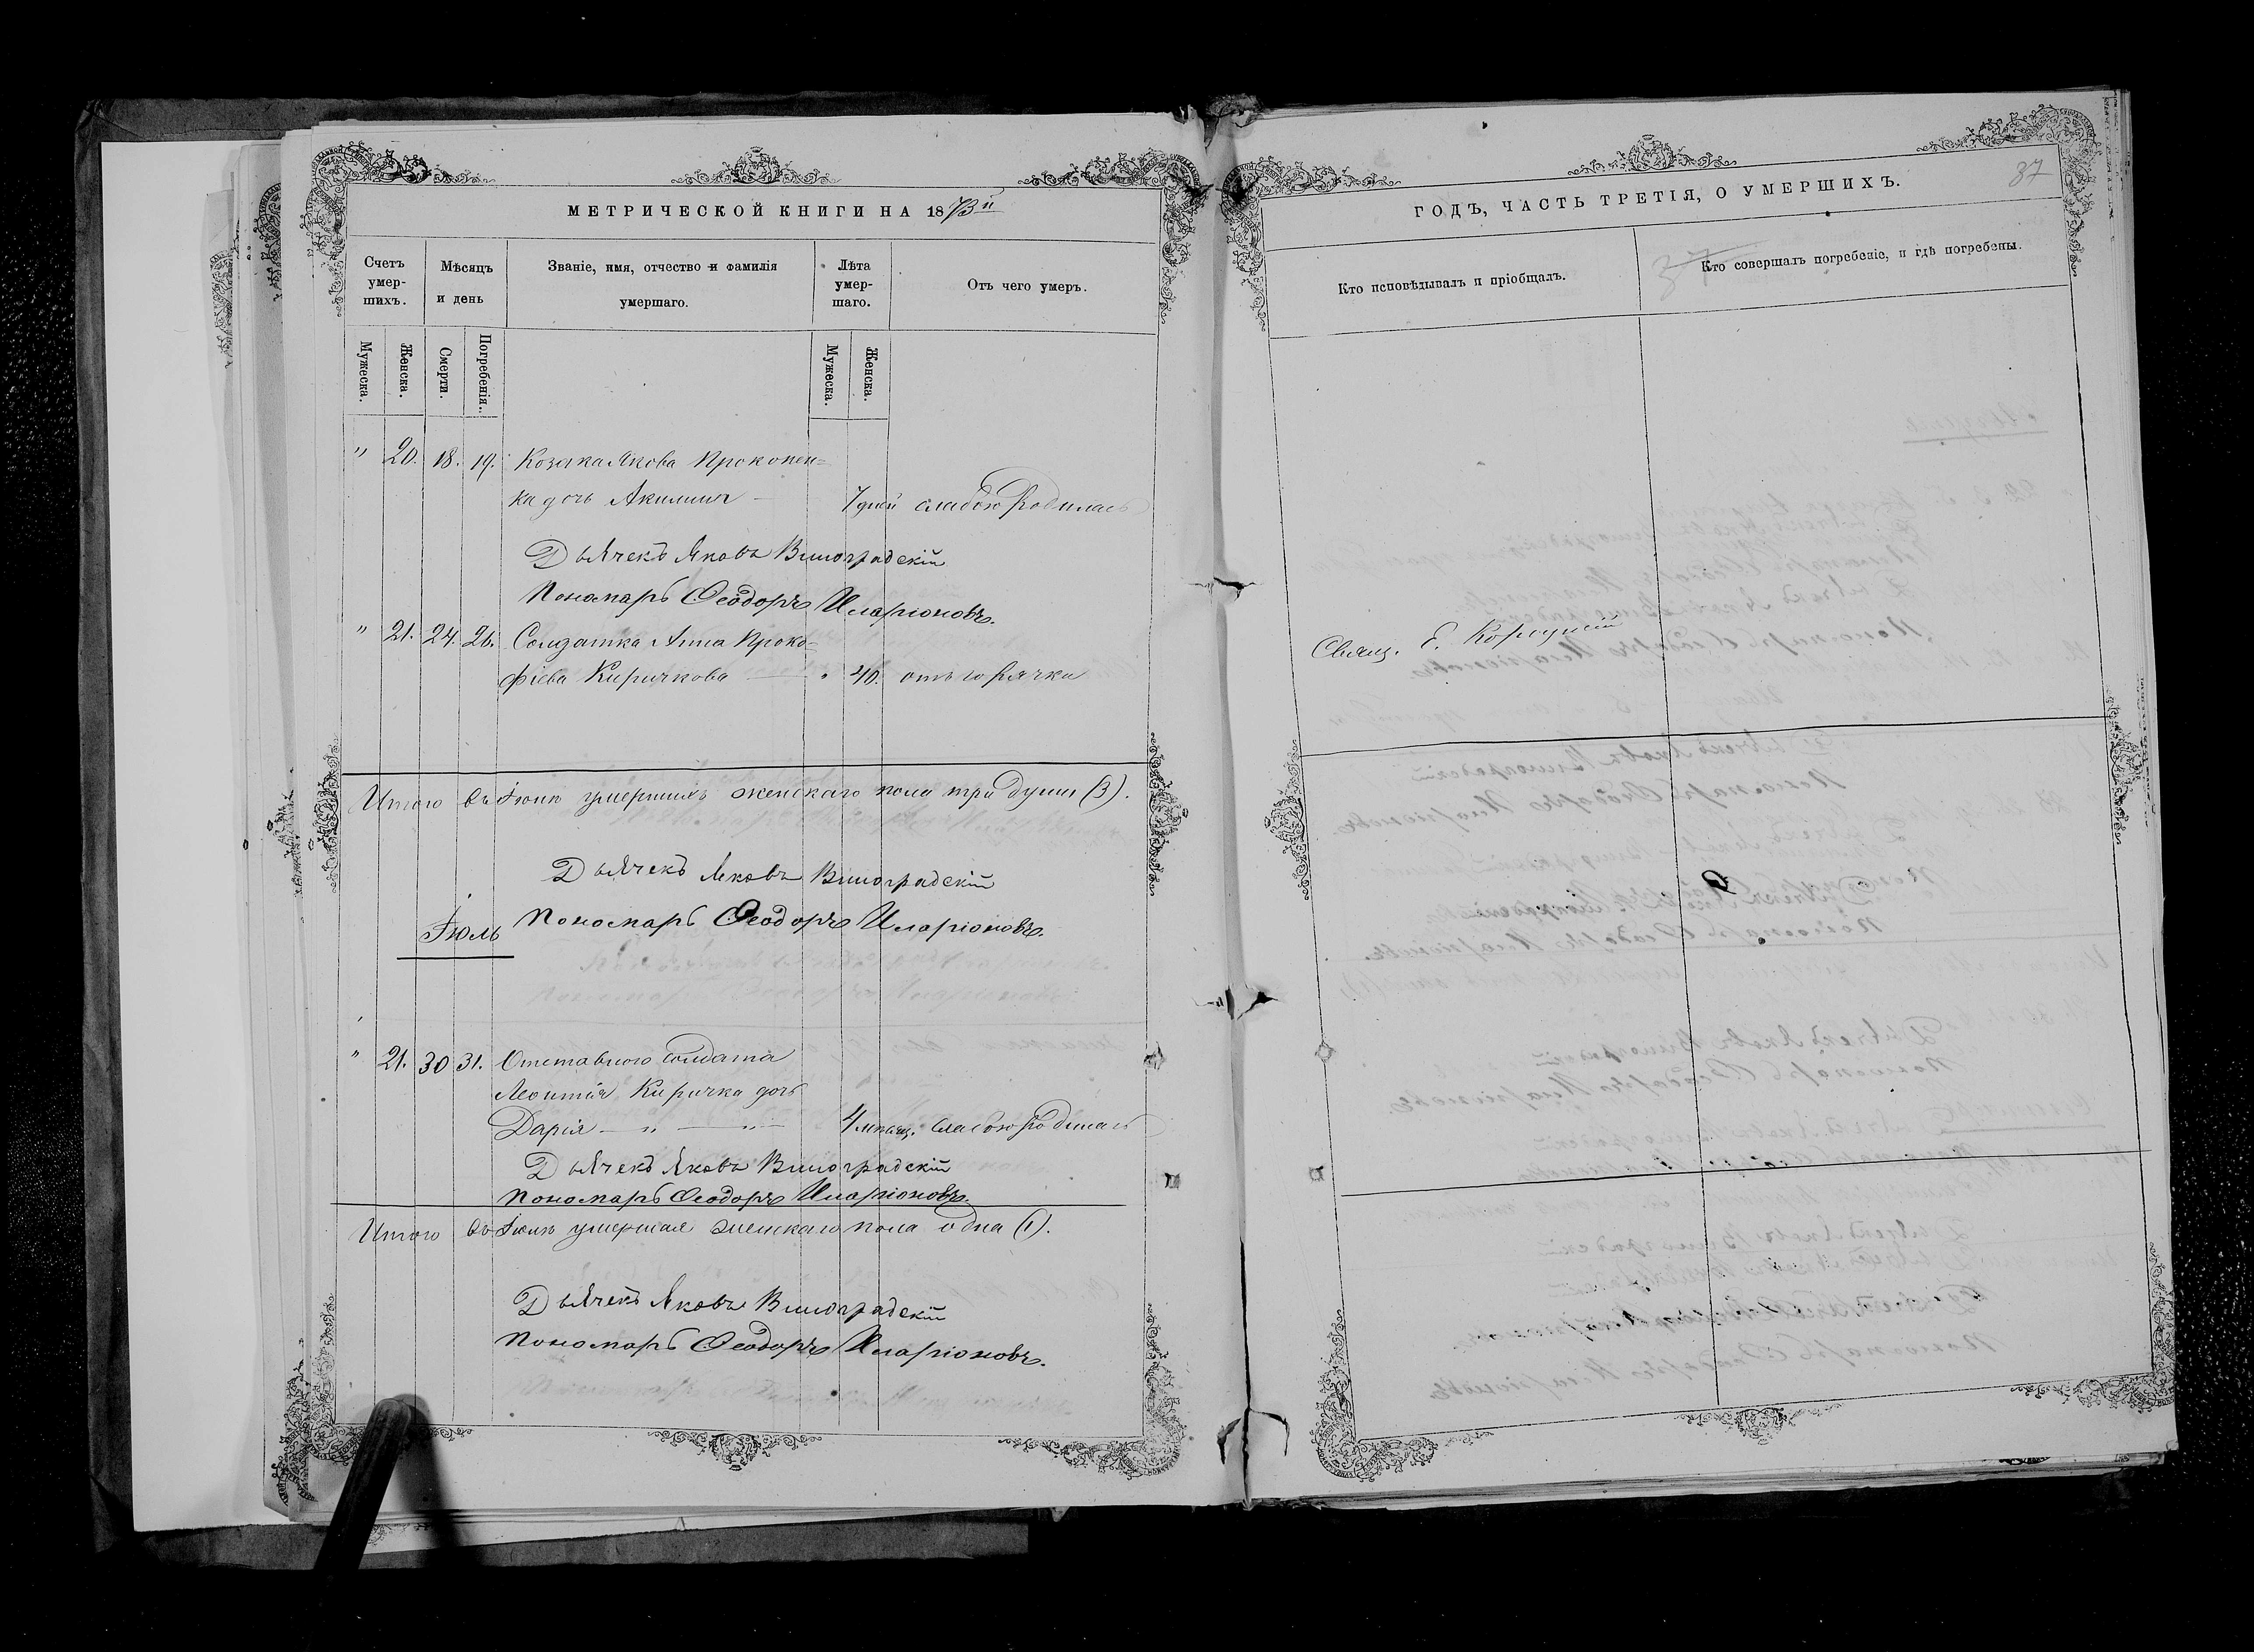 МЕТРИЧЕСКОЙ КНИГИ НА 1873й
Счетъ умер-шихъ.
Мѣсяцъ и день
Званіе, имя, отчество и фамилія умершаго.
Лѣта умер-шаго.
Отъ чего умеръ.
Мужеска.
Женска.
Смерти.
Погребенія.
Мужеска.
Женска.
" 20. 18. 19. Козака Якова Прокопен=
ка дочь Акилина — 7 дней слабою родилась
Дьячекъ Яковъ Виноградскій
Пономарь Ѳеодоръ Иларіоновъ.
" 21. 24. 26. Солдатка Анна Проко=
фіева Киричкова — " 40. отъ горячки
Итого въ Іюнѣ умершихъ женскаго пола три души (3).
Дьячекъ Яковъ Виноградскій
Іюль Пономарь Ѳеодоръ Иларіоновъ.
" 21. 30 31. Отставного солдата
Леонтія Киричка дочь
Дарія — " — " — 4 мѣсяц. слабою родилась
Дьячекъ Яковъ Виноградскій
Пономарь Ѳеодоръ Иларіоновъ.
Итого въ Іюлѣ умершая женскаго пола одна (1).
Дьячекъ Яковъ Виноградскій
Пономарь Ѳеодоръ Иларіоновъ.
87
ГОДЪ, ЧАСТЬ ТРЕТІЯ, О УМЕРШИХЪ.
Кто исповѣдывалъ и пріобщалъ.
37
Кто совершалъ погребеніе, и гдѣ погребены.
Свящ. Е.